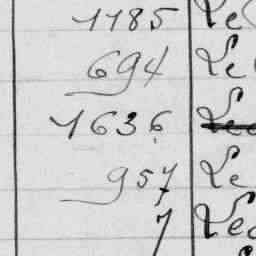 1185 Le
694 Le
1636
957 Le
7 Lec